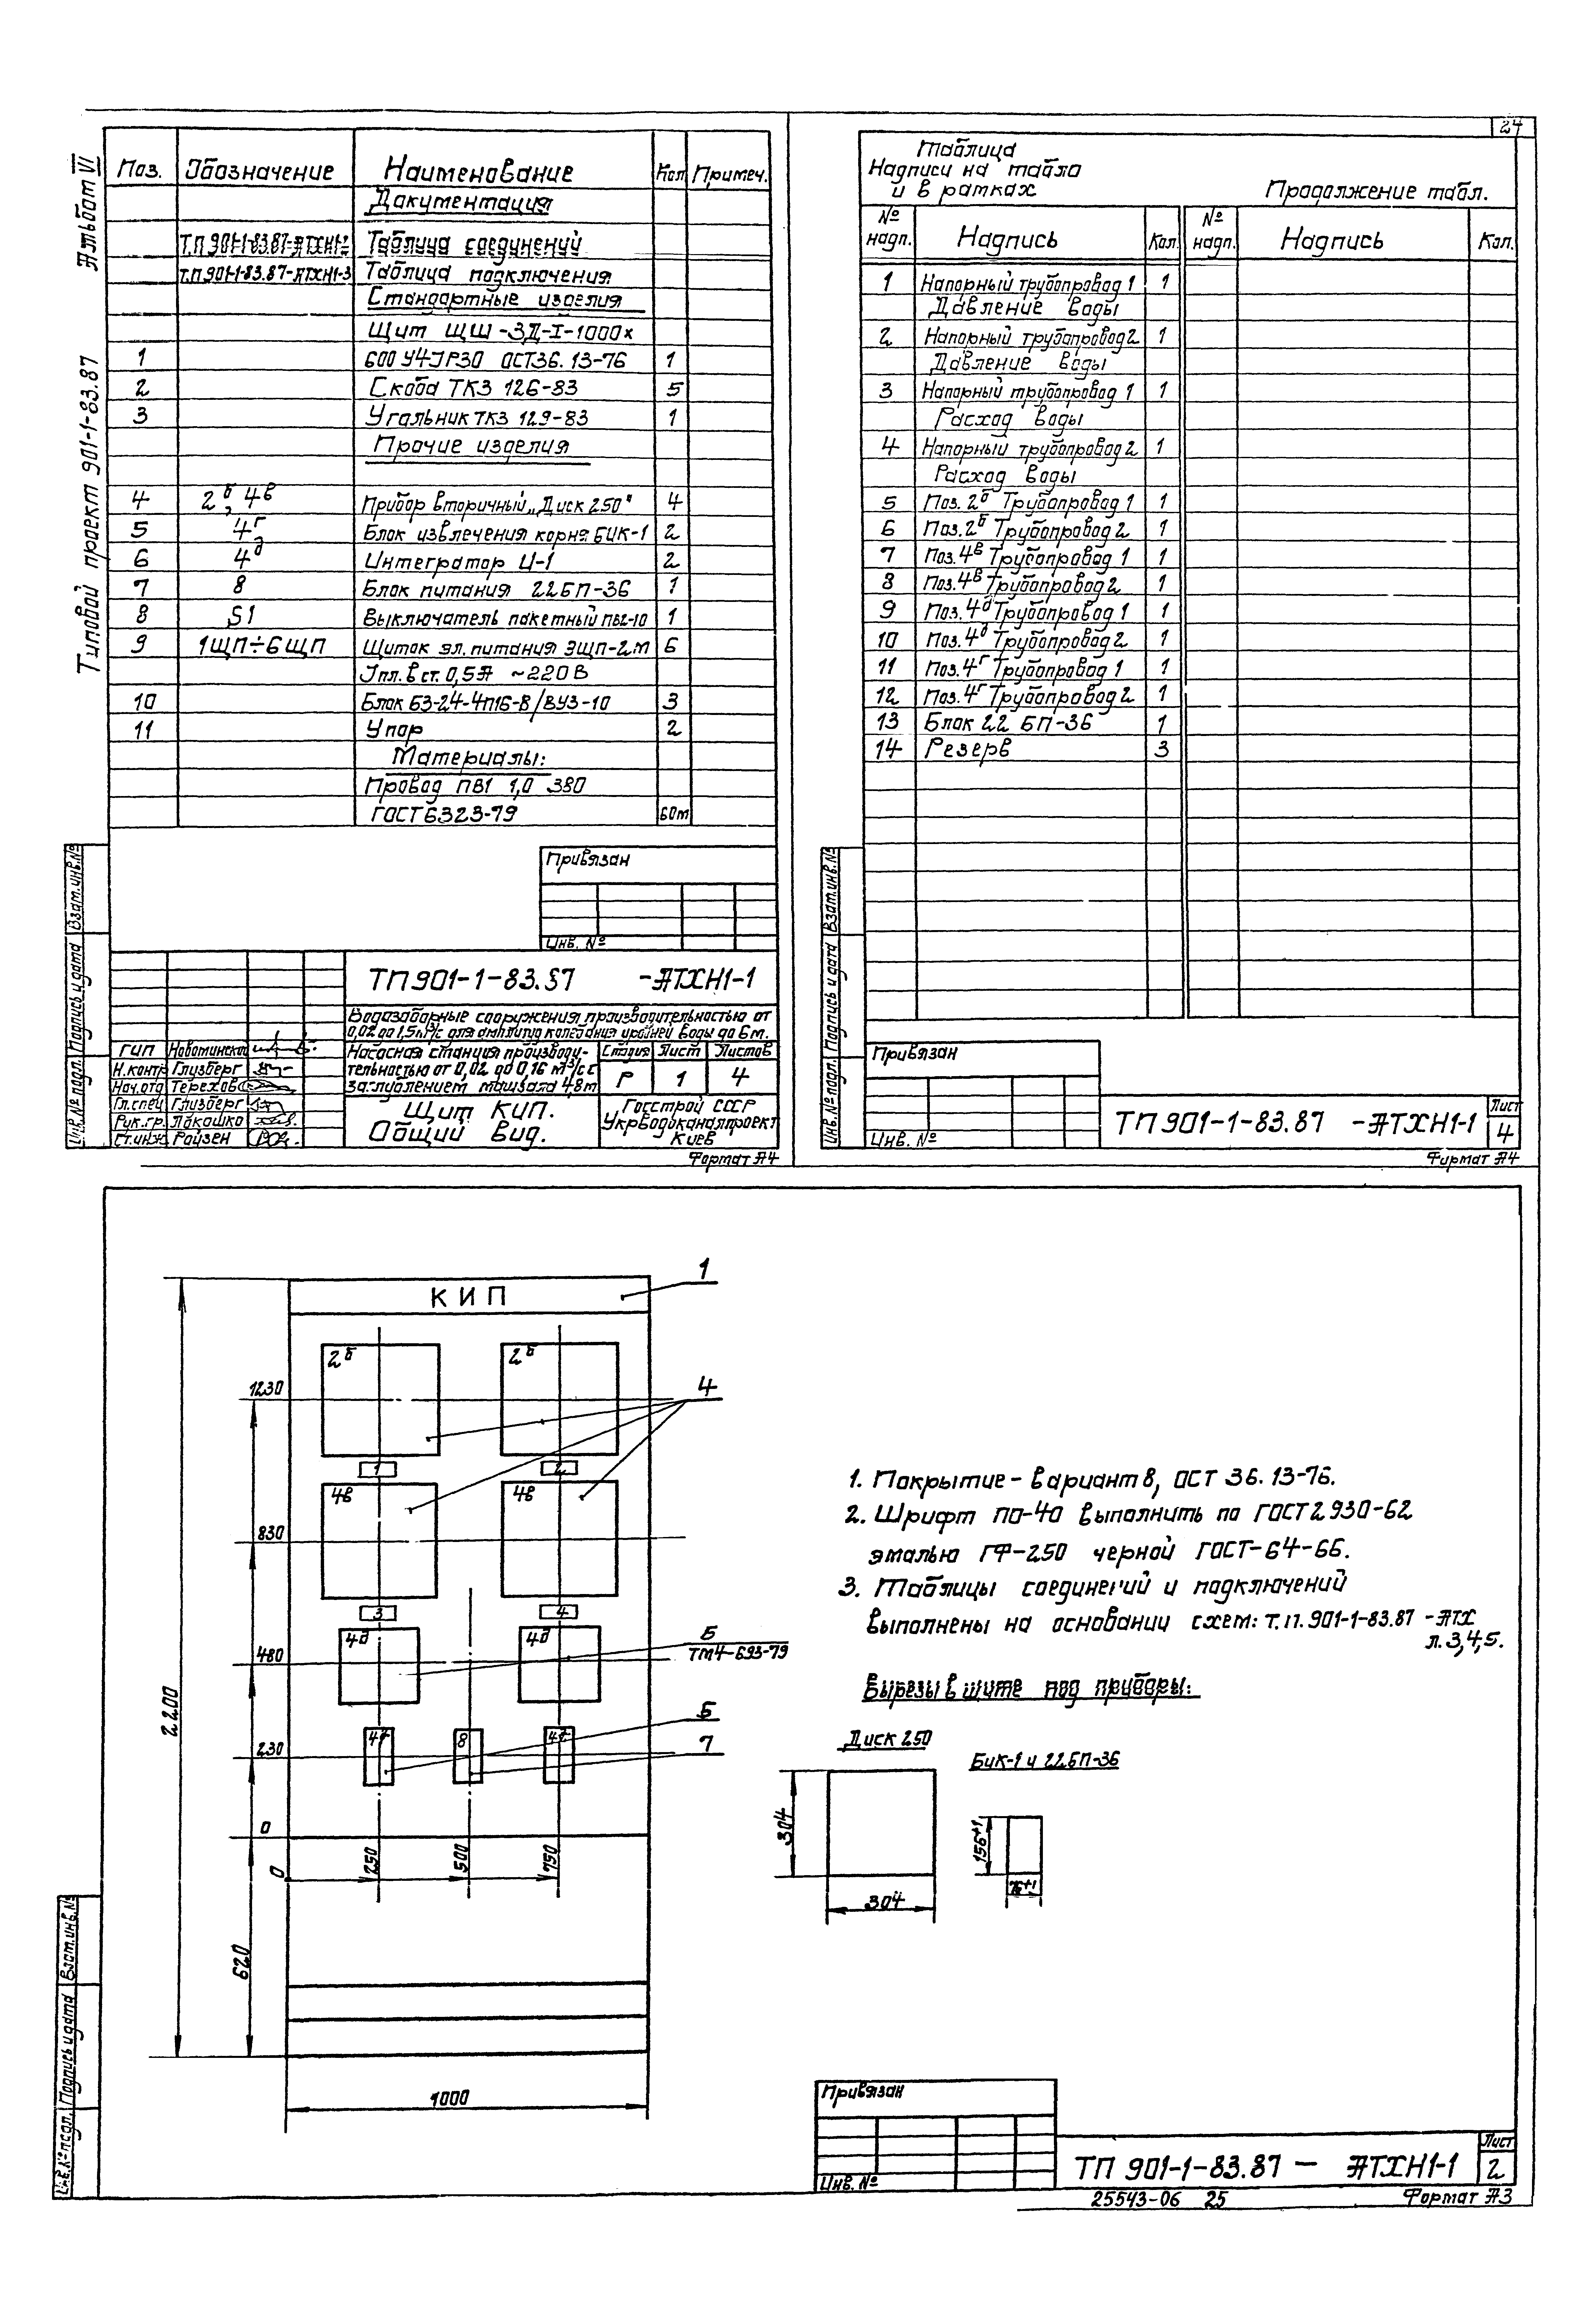 24
Альбом VI
Типовой проект 901-1-83.87
Поз. Обозначение Наименование Кол Примеч.
Документация
Т.П 901-1-83.87-АТХН1-2 Таблица соединений
Т.П 901-1-83.87-АТХН1-3 Таблица подключения
Стандартные изделия
Щит ЩШ-ЗД-I-1000х
1 600 У4-IP30 ОСТ36.13-76 1
2 Скоба ТК3 126-83 5
3 Угольник ТК3 129-83 1
Прочие изделия
4 2б, 4в Прибор вторичный „Диск 250" 4
5 4г Блок извлечения корня БИК-1 2
6 4д Интегратор И-1 2
7 8 Блок питания 22БП-36 1
8 S1 Выключатель пакетный ПВ2-10 1
9 1ЩП÷6ЩП Щиток эл. питания ЭЩП-2М 6
Iпл.вст. 0,5А ~220В
10 Блок БЗ-24-4П16-В/ВУЗ-10 3
11 Упор 2
Материалы:
Провод ПВ1 1,0 380
ГОСТ 6323-79 60м
Привязан
Инв. №
ТП 901-1-83.87 -АТХН1-1
Водозаборные сооружения производительностью от
0,02 до 1,5 м³/с для амплитуд колебания уровней воды до 6м.
ГИП Новоминской
Н.контр Глузберг
Нач.отд Терехов
Гл.спец Глузберг
Рук.гр. Лакашко
Ст.инж Райзен
Насосная станция производи-
тельностью от 0,02 до 0,16 м³/с с
заглублением машзала 4,8м
Стадия Лист Листов
Р 1 4
Щит КИП.
Общий вид.
Госстрой СССР
Укрводоканалпроект
Киев
Формат А4
Инв.№ подл. Подпись и дата Взам.инв.№
Таблица
Надписи на табло
и в рамках
Продолжение табл.
№ надп. Надпись Кол. № надп. Надпись Кол.
1 Напорный трубопровод 1 1
Давление воды
2 Напорный трубопровод 2 1
Давление воды
3 Напорный трубопровод 1 1
Расход воды
4 Напорный трубопровод 2 1
Расход воды
5 Поз. 2б Трубопровод 1 1
6 Поз. 2б Трубопровод 2 1
7 Поз. 4в Трубопровод 1 1
8 Поз. 4в Трубопровод 2 1
9 Поз. 4д Трубопровод 1 1
10 Поз. 4д Трубопровод 2 1
11 Поз. 4г Трубопровод 1 1
12 Поз. 4г Трубопровод 2 1
13 Блок 22 БП-36 1
14 Резерв 3
Привязан
Инв. №
ТП 901-1-83.87 -АТХН1-1
Лист
4
Формат А4
Инв.№ подл. Подпись и дата Взам.инв.№
КИП
1
2б 2б
1230
4
1 2
4в 4в
830
3 4
4д 4д
480
Б
ТМ4-693-79
4г 8 4г
230
Б
7
0
0 250 500 750
2200
620
1000
1. Покрытие - вариант 8, ОСТ 36.13-76.
2. Шрифт ПО-40 выполнить по ГОСТ 2930-62
эмалью ГФ-250 черной ГОСТ-64-66.
3. Таблицы соединений и подключений
выполнены на основании схем: т.п. 901-1-83.87 -АТХ
л. 3,4,5.
Вырезы в щите под приборы:
Диск 250
304
304
Бик-1 и 22БП-36
156+1
76+1
Привязан
Инв. №
ТП 901-1-83.87 - АТХН1-1
Лист
2
25543-06 25
Формат А3
Инв.№ подл. Подпись и дата Взам.инв.№